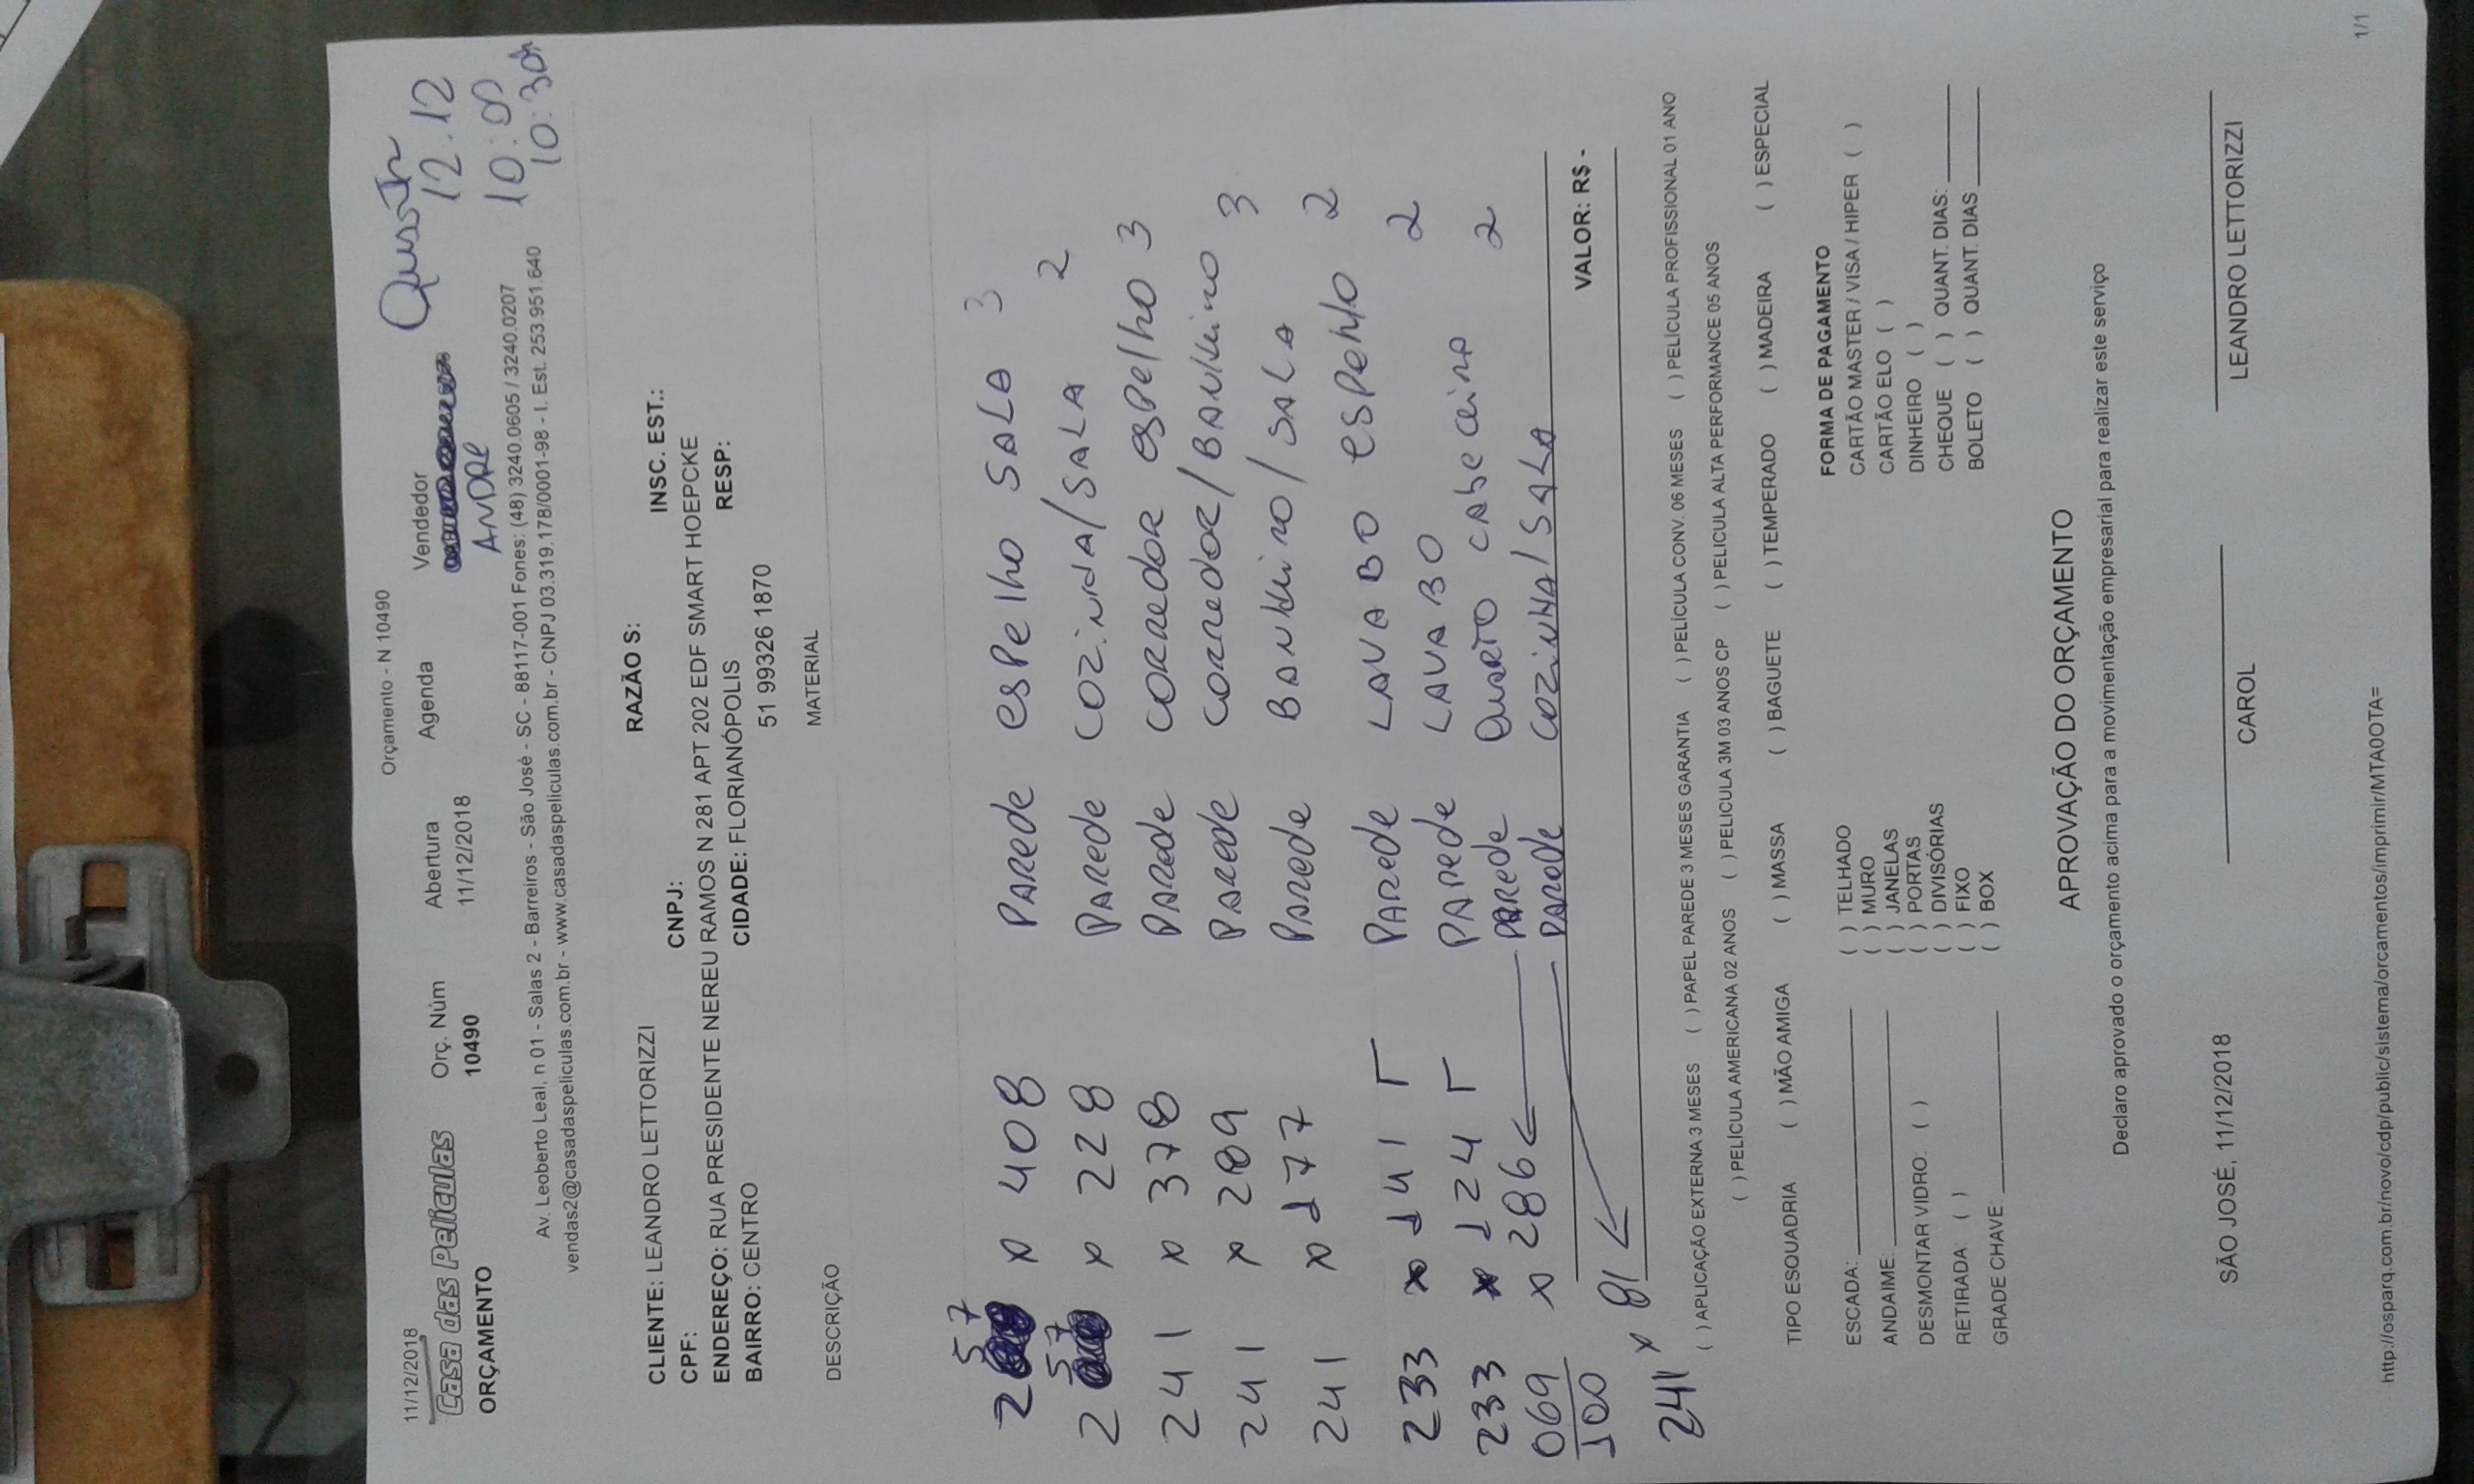 11/12/2018
Orçamento - N 10490
Casa das Peliculas
ORÇAMENTO
Orç. Núm
10490
Abertura
11/12/2018
Agenda
Vendedor
ANDRE
12.12
10:00
10:30h
Av. Leoberto Leal, n 01 - Salas 2 - Barreiros - São José - SC - 88117-001 Fones: (48) 3240.0605 / 3240.0207
vendas2@casadaspeliculas.com.br - www.casadaspeliculas.com.br - CNPJ 03.319.178/0001-98 - I. Est. 253.951.640
CLIENTE: LEANDRO LETTORIZZI RAZÃO S:
CPF: CNPJ: INSC. EST.:
ENDEREÇO: RUA PRESIDENTE NEREU RAMOS N 281 APT 202 EDF SMART HOEPCKE
BAIRRO: CENTRO CIDADE: FLORIANÓPOLIS RESP:
51 99326 1870
DESCRIÇÃO MATERIAL
257 x 408 PAREDE esPelho SALA 3
257 x 228 PAREDE COZINHA/SALA 2
241 x 378 PAREDE CORREDOR espelho 3
241 x 289 PAREDE corredor/BANHEIRO 3
241 x 177 PAREDE BANHEIRO/SALA 2
233 x 141 PAREDE LAVABO espelho 2
233 x 124 PAREDE LAVABO 2
069 x 286 PAREDE QUARTO CABECEIRA 2
100 PAREDE COZINHA/SALA
241 x 81
VALOR: R$ -
( ) APLICAÇÃO EXTERNA 3 MESES ( ) PAPEL PAREDE 3 MESES GARANTIA ( ) PELÍCULA CONV. 06 MESES ( ) PELÍCULA PROFISSIONAL 01 ANO
( ) PELÍCULA AMERICANA 02 ANOS ( ) PELICULA 3M 03 ANOS CP ( ) PELICULA ALTA PERFORMANCE 05 ANOS
TIPO ESQUADRIA ( ) MÃO AMIGA ( ) MASSA ( ) BAGUETE ( ) TEMPERADO ( ) MADEIRA ( ) ESPECIAL
ESCADA:
ANDAIME:
DESMONTAR VIDRO: ( )
RETIRADA: ( )
GRADE CHAVE:
( ) TELHADO
( ) MURO
( ) JANELAS
( ) PORTAS
( ) DIVISÓRIAS
( ) FIXO
( ) BOX
FORMA DE PAGAMENTO
CARTÃO MASTER / VISA / HIPER ( )
CARTÃO ELO ( )
DINHEIRO ( )
CHEQUE ( ) QUANT. DIAS:
BOLETO ( ) QUANT. DIAS
APROVAÇÃO DO ORÇAMENTO
Declaro aprovado o orçamento acima para a movimentação empresarial para realizar este serviço
SÃO JOSÉ, 11/12/2018
CAROL
LEANDRO LETTORIZZI
http://osparq.com.br/novo/cdp/public/sistema/orcamentos/imprimir/MTA0OTA=
1/1